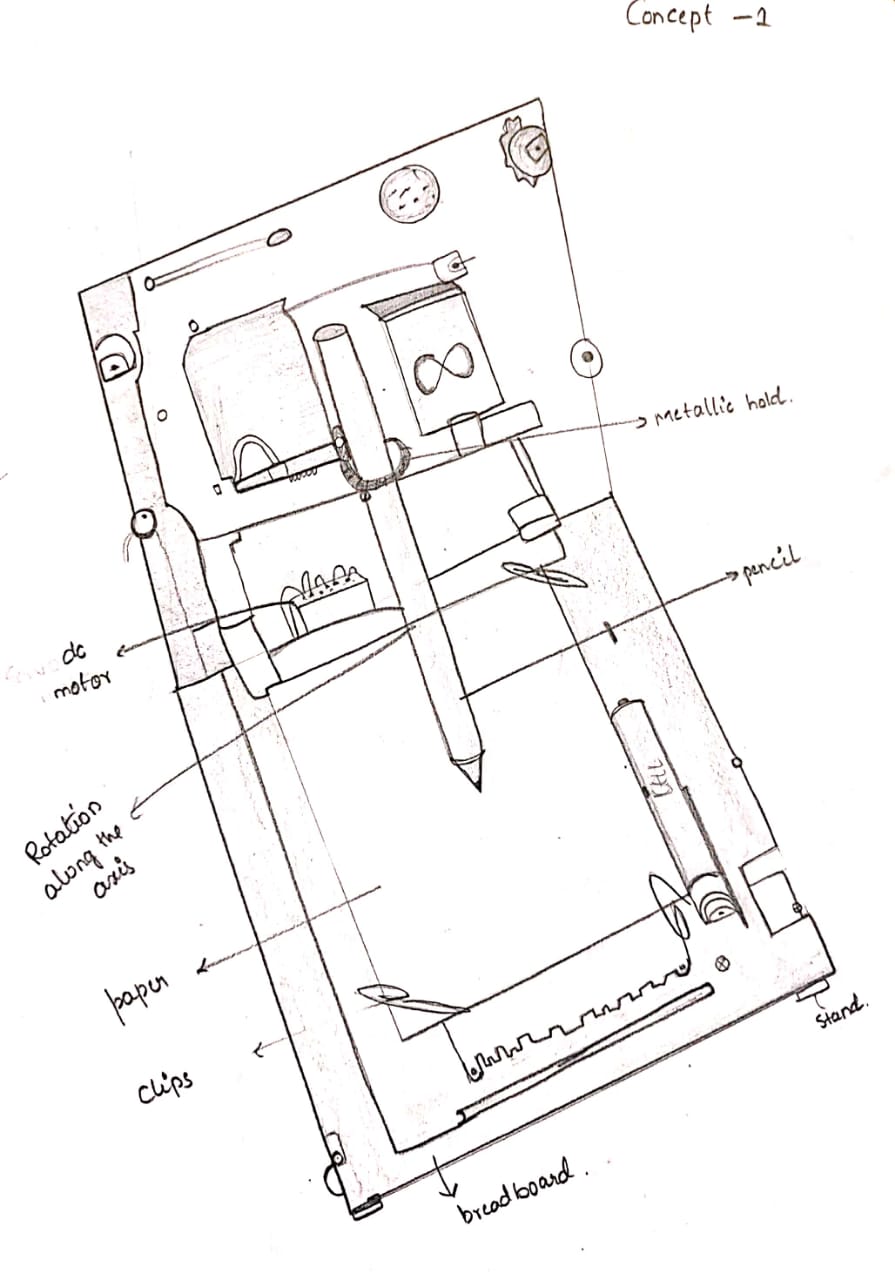 Concept -1
metallic hold.
pencil
dc
motor
Rotation
along the
axis
paper
clips
stand.
breadboard.